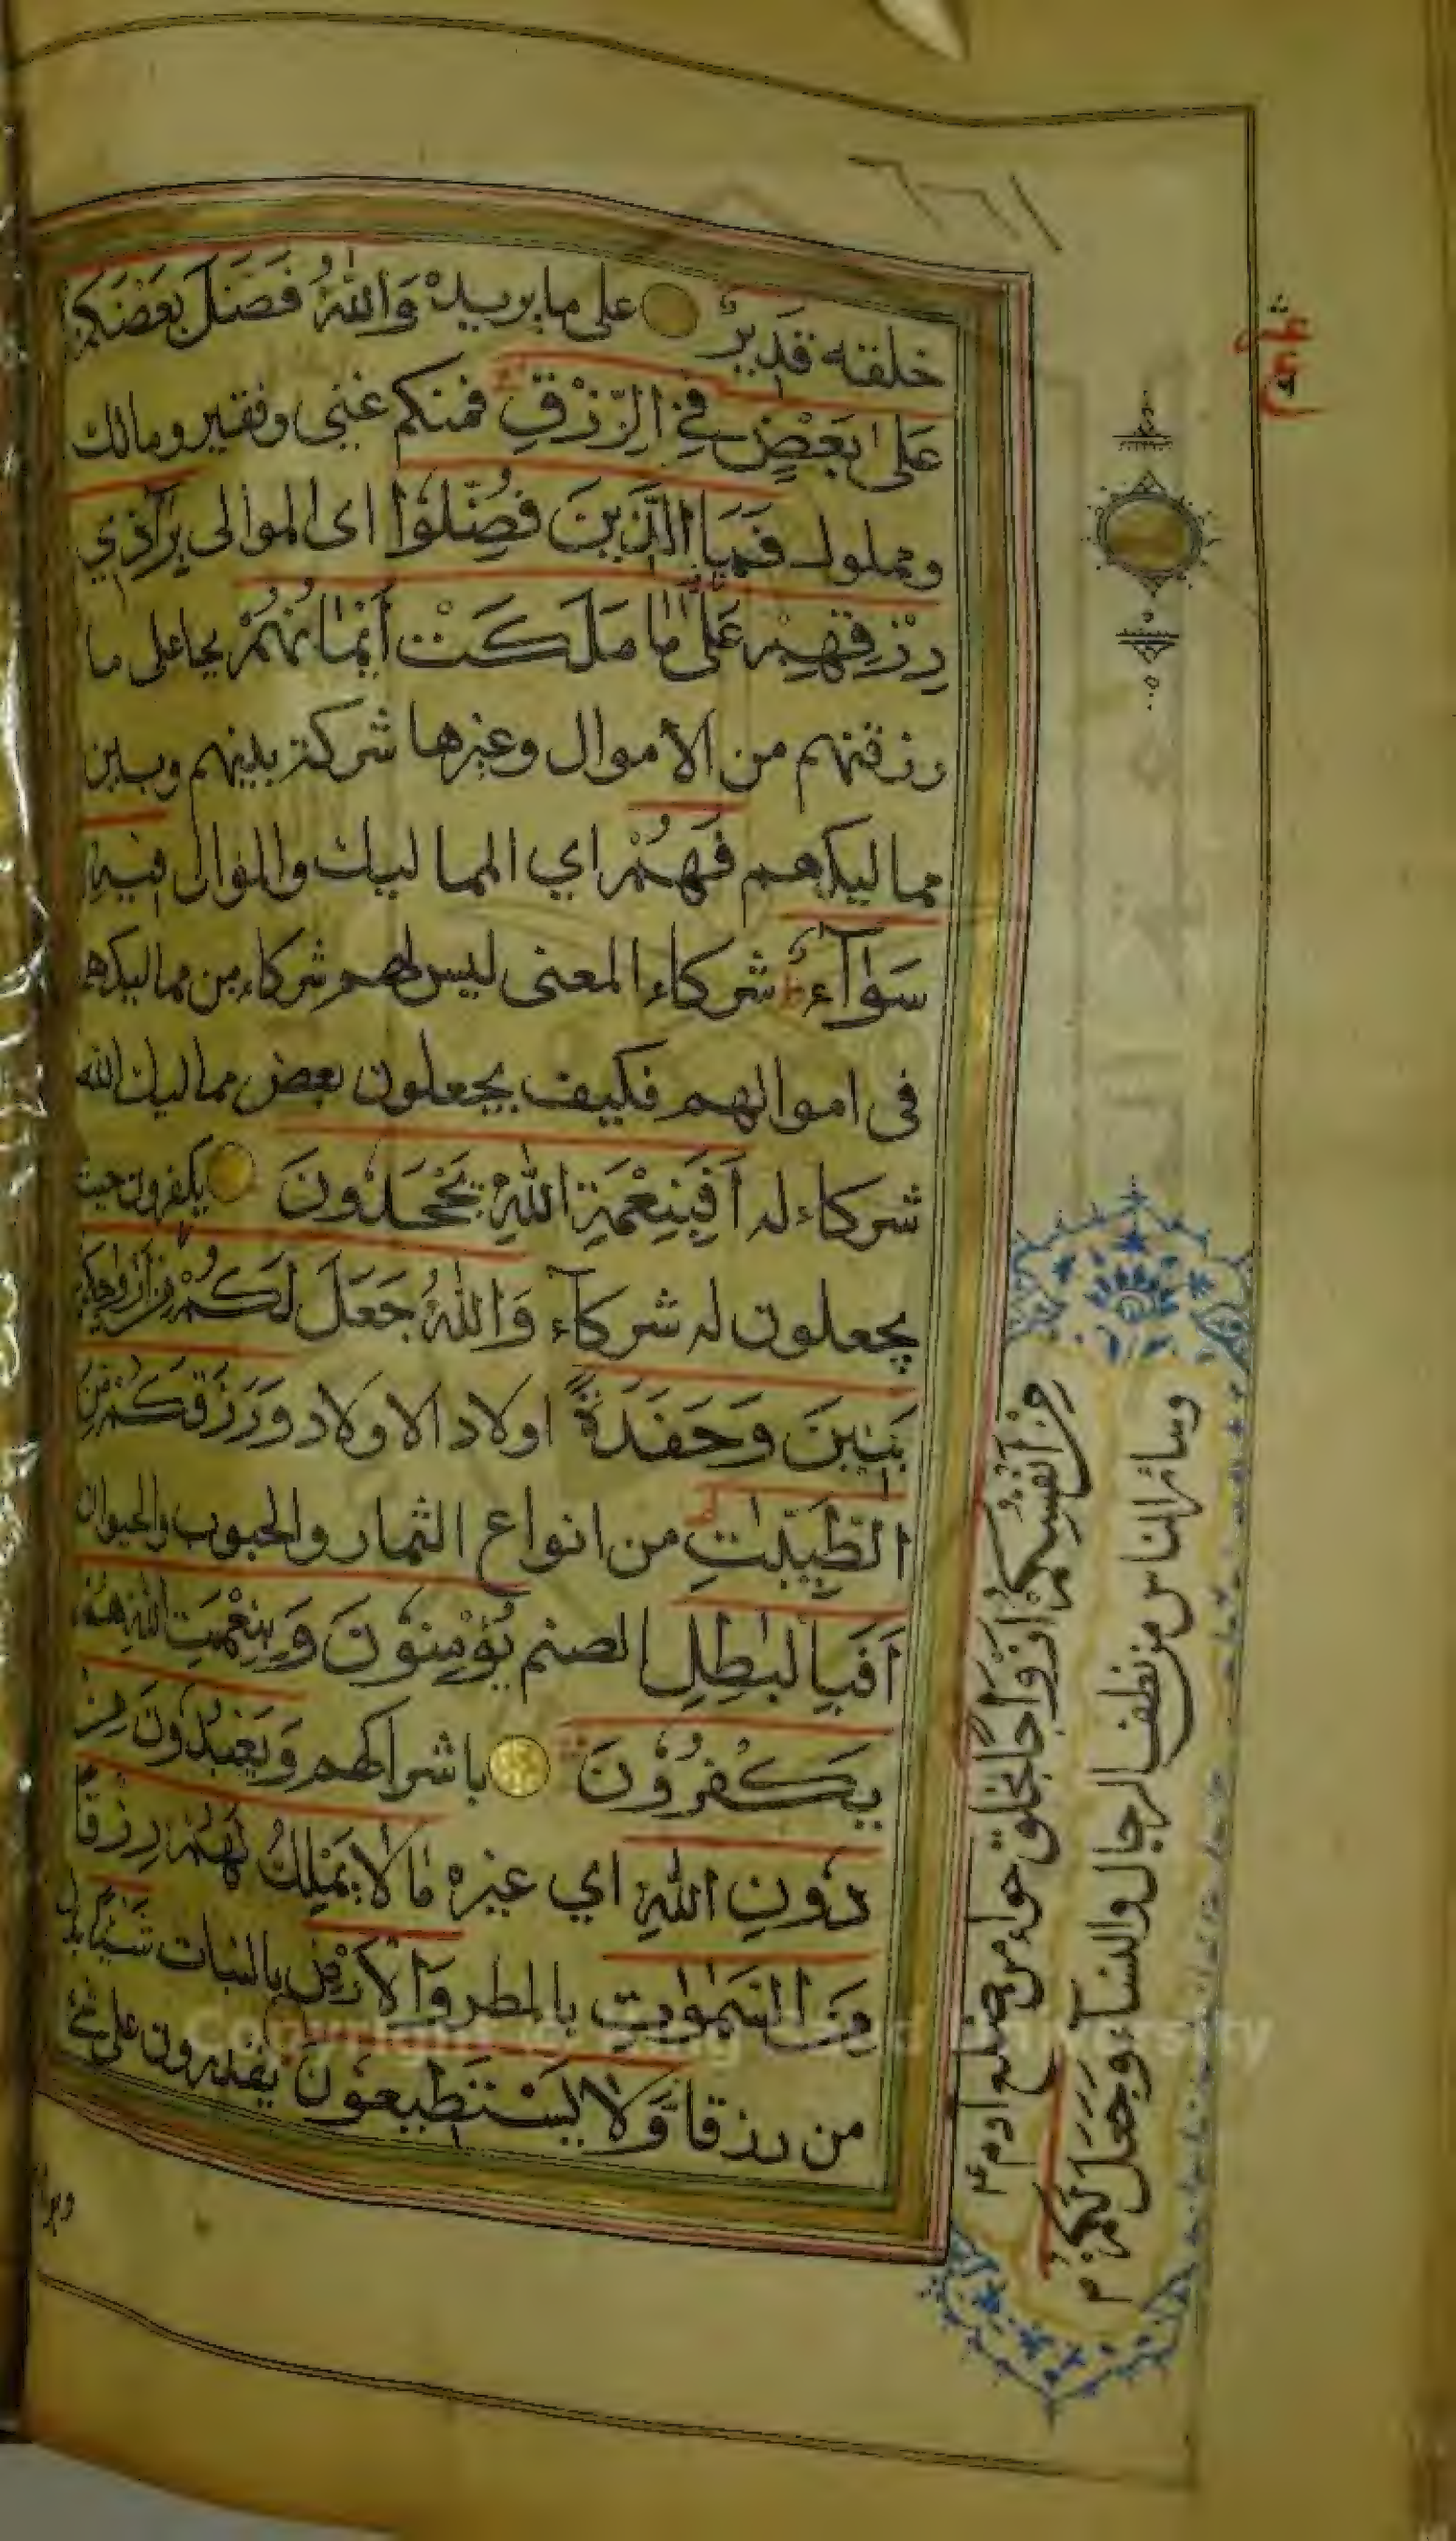 خلقه قَدِيرٌ على ما يريده وَاللّٰهُ فَضَّلَ بَعْضَكُمْ
عَلٰى بَعْضٍ فِي الرِّزْقِ فمنكم غني وفقير ومالك
ومملوك فَمَا الَّذِينَ فُضِّلُوْا اى الموالى بِرَآدِّي
رِزْقِهِمْ عَلٰى مَا مَلَكَتْ أَيْمَانُهُمْ بجاعلى ما
رزقنهم من الاموال وغيرها شركة بينهم وبين
مماليكهم فَهُمْ اي المماليك والموال فِيهِ
سَوَآءٌ شركاء المعنى ليس لهم شركاء من مماليكهم
فى اموالهم فكيف يجعلون بعض مماليك الله
شركاء له اَفَبِنِعْمَةِ اللّٰهِ يَجْحَدُونَ يكفرون حيث
يجعلون له شركآء وَاللّٰهُ جَعَلَ لَكُمْ مِنْ أَزْوَاجِكُمْ
بَنِينَ وَحَفَدَةً اولاد الاولاد وَرَزَقَكُمْ مِنَ
الطَّيِّبٰتِ من انواع الثمار والحبوب والحيوان
اَفَبِالْبٰطِلِ الصنم يُؤْمِنُوْنَ وَبِنِعْمَتِ اللّٰهِ هُمْ
يَكْفُرُوْنَ باشراكهم وَيَعْبُدُوْنَ مِنْ
دُوْنِ اللّٰهِ اي غيره مَا لَا يَمْلِكُ لَهُمْ رِزْقًا
مِنَ السَّمٰوٰتِ بالمطر وَالْاَرْضِ بالنبات شَيْئًا بدل
من رزقا وَّلَا يَسْتَطِيعُوْنَ يقدرون على شئ
مِنْ اَنْفُسِكُمْ اَزْوَاجًا فخلق حواء من ضلع ادم
وسائر الناس من نطف الرجال والنسآء وَجَعَلَ لَكُمْ
عشر
ع
Copyright © King Saud University